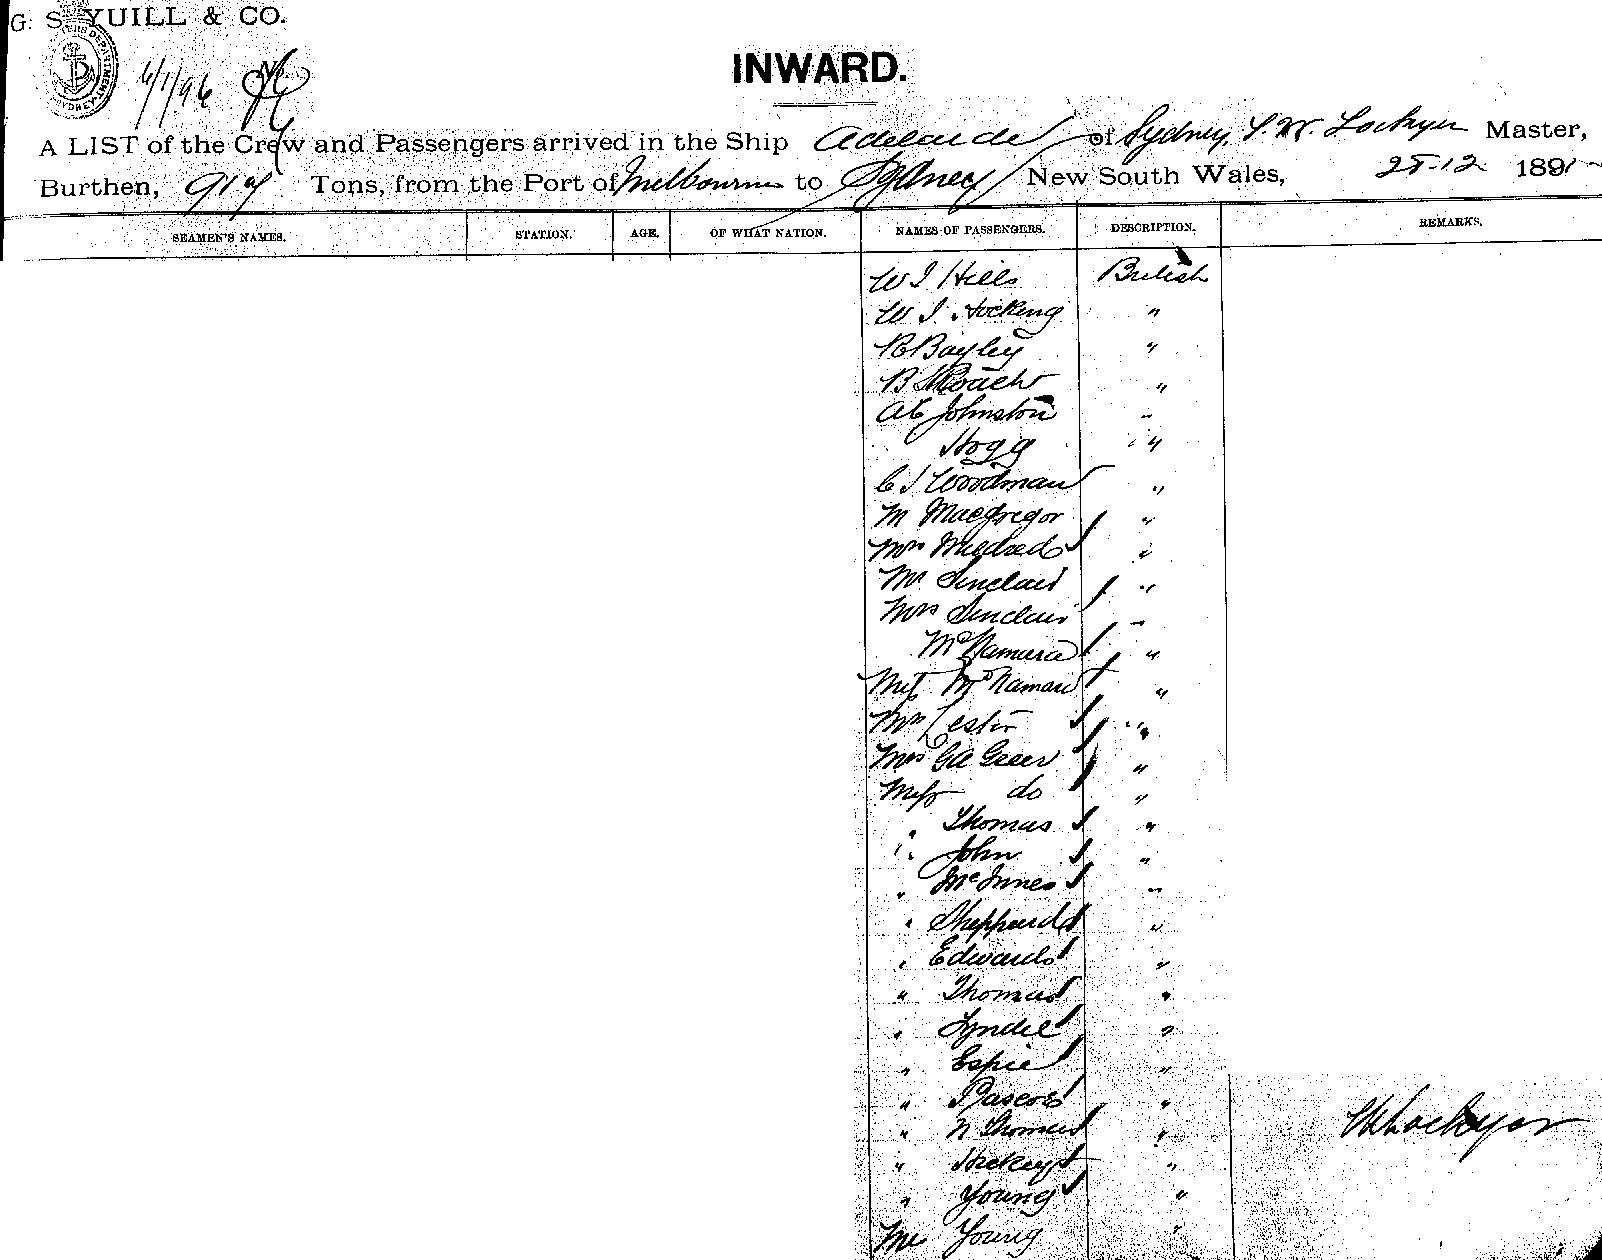 G. S. YUILL & CO.
6/1/96
INWARD.
A LIST of the Crew and Passengers arrived in the Ship Adelaide of Sydney, Lockyer Master,
Burthen, Tons, from the Port of Melbourne to Sydney New South Wales, 25-12 189
SEAMEN'S NAMES. STATION. AGE. OF WHAT NATION. NAMES OF PASSENGERS. DESCRIPTION. REMARKS.
W J Hills British
W J Hocking "
R Bayley "
B Roach "
A E Johnston "
Hogg "
C J Woodman "
M Macgregor "
Mrs Mildred "
Mr Sinclair "
Mrs Sinclair "
McNamara "
Miss McNamara "
Mrs Lester "
Mrs GA Greer "
Miss do "
" Thomas "
" John "
" McInnes "
" Sheppard "
" Edwards "
" Thomas "
" Lyndel "
" Espie "
" Pascoe "
" N Thomas "
" Hickey "
" Young "
Mr Young "
Lockyer